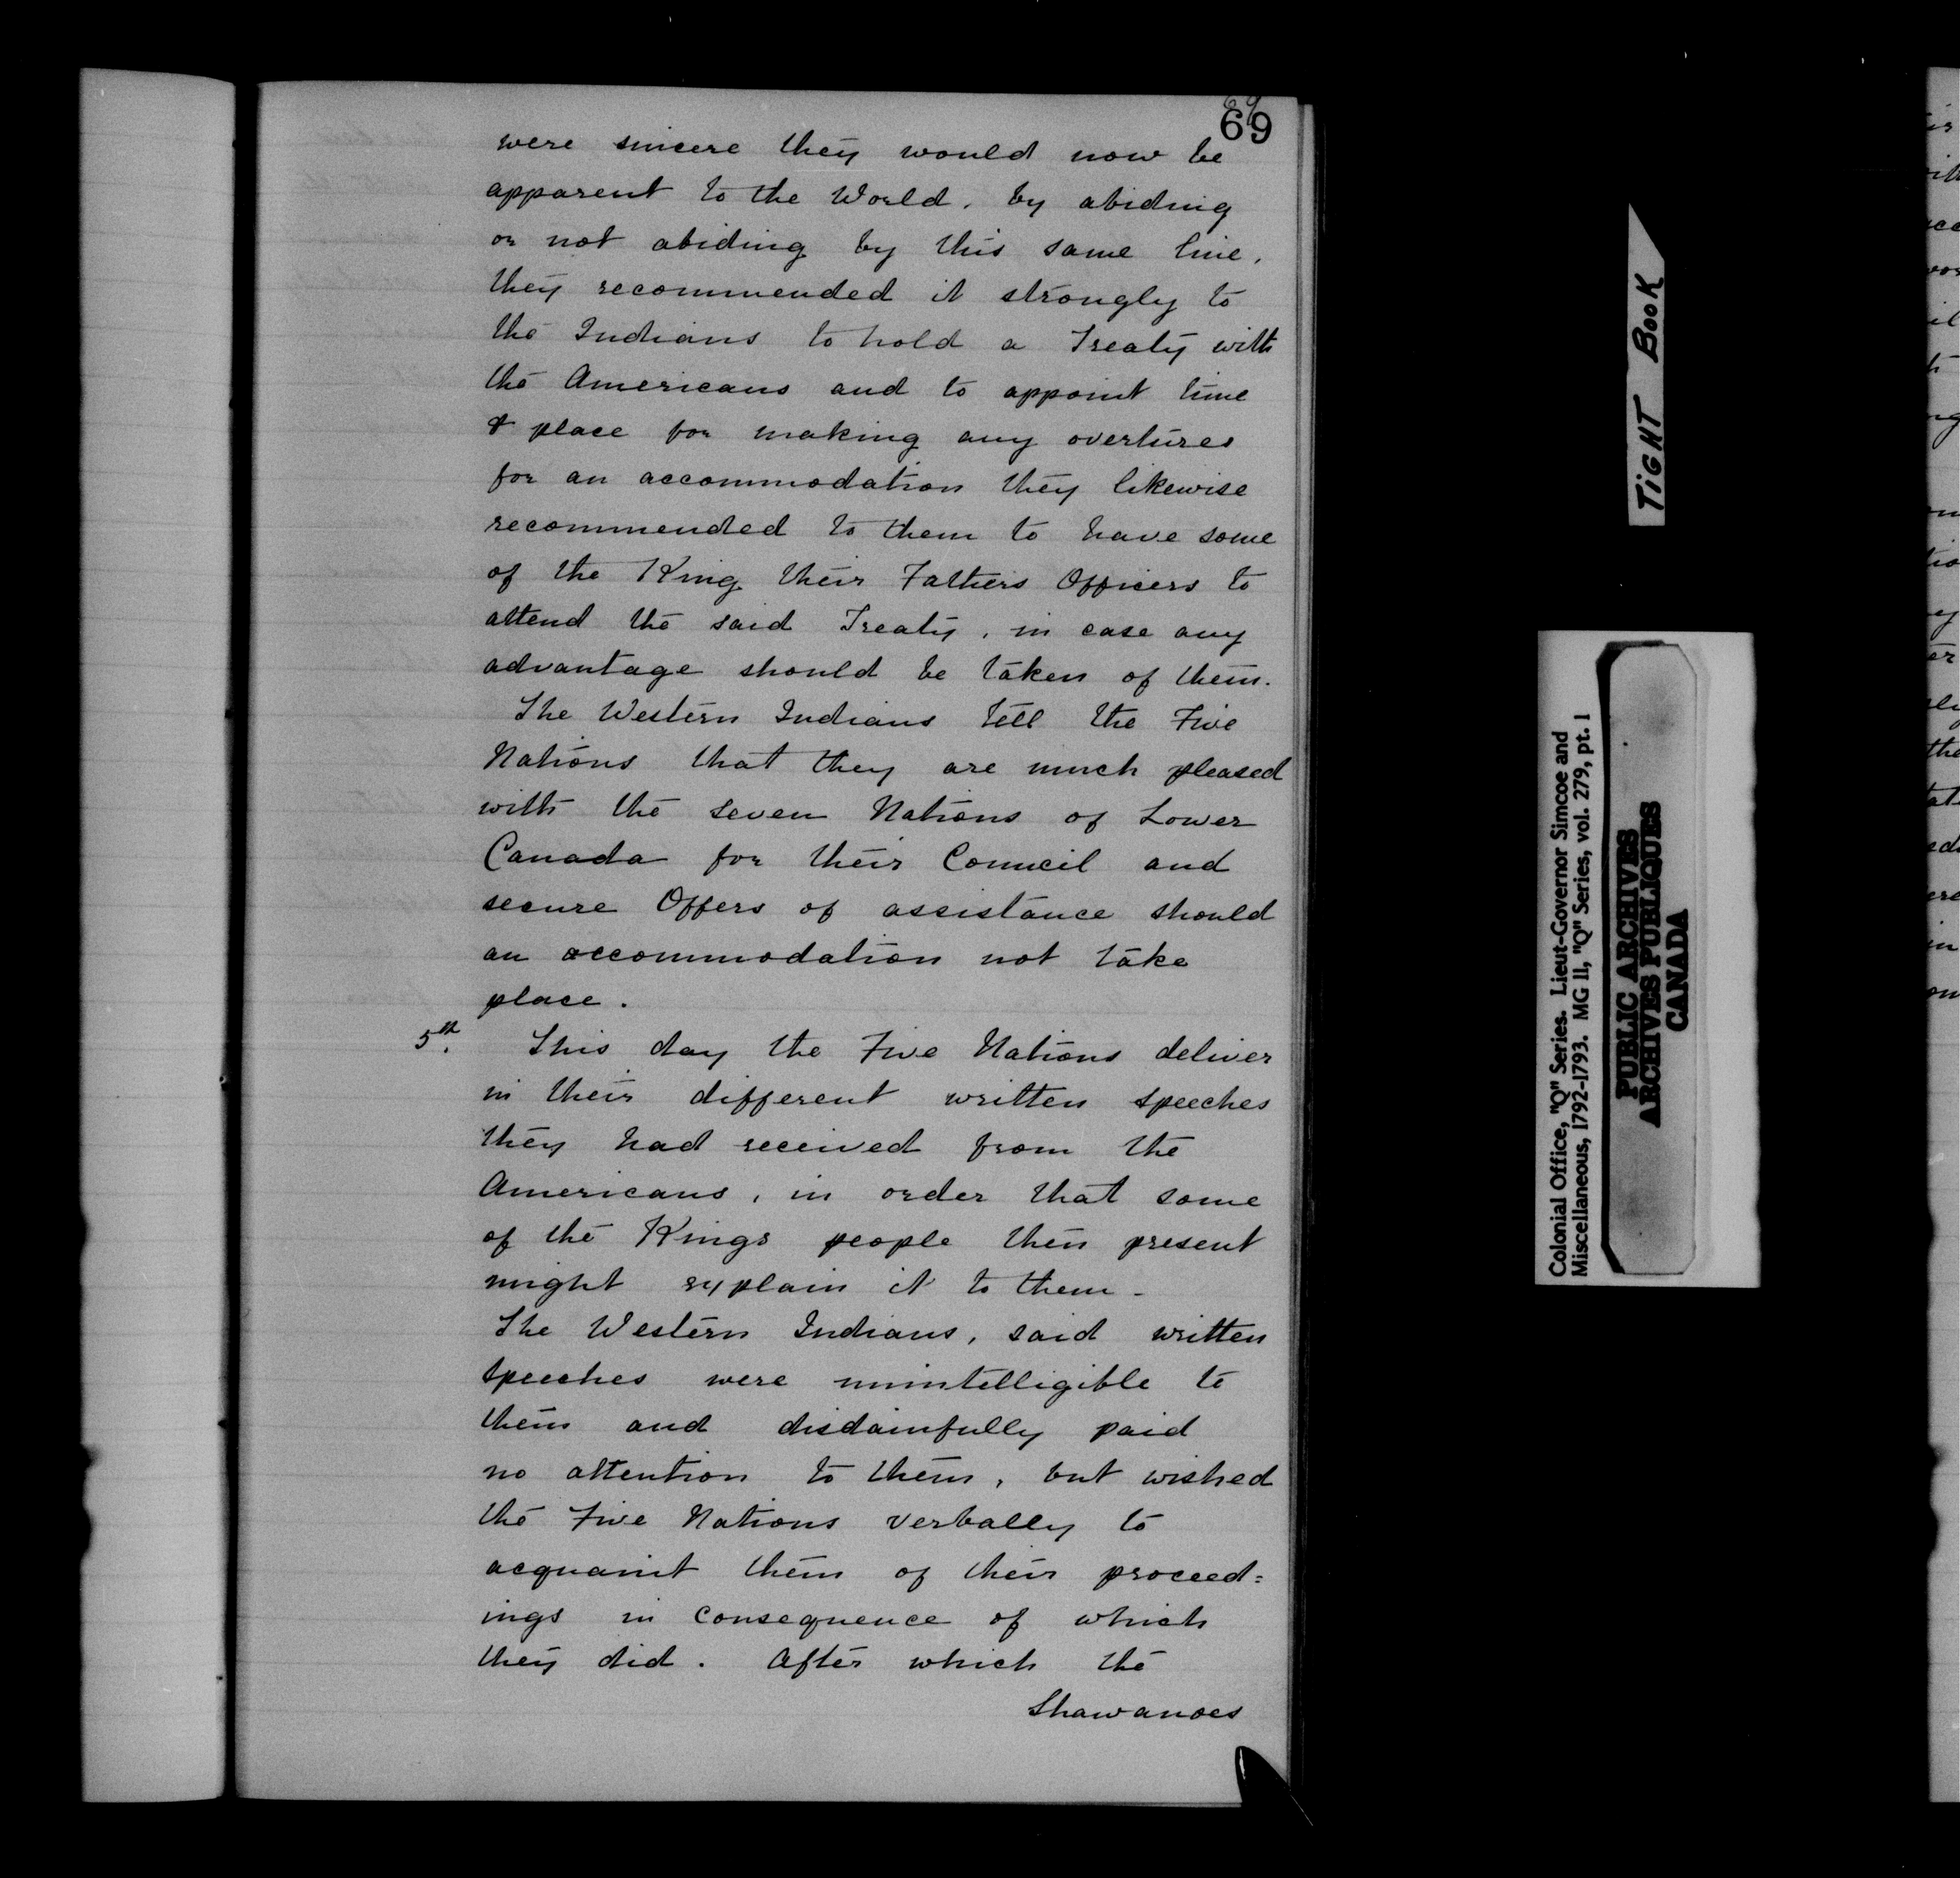 69
69
were sincere they would now be
apparent to the World, by abiding
or not abiding by this same line,
they recommended it strongly to
the Indians to hold a Treaty with
the Americans and to appoint time
& place for making any overtures
for an accommodation they likewise
recommended to them to have some
of the King their Fathers Officers to
attend the said Treaty, in case any
advantage should be taken of them.
The Western Indians tell the Five
Nations that they are much pleased
with the seven Nations of Lower
Canada for their Council and
secure Offers of assistance should
an accommodation not take
place.
5th. This day the Five Nations deliver
in their different written speeches
they had received from the
Americans, in order that some
of the Kings people then present
might explain it to them -
The Western Indians, said written
speeches were unintelligible to
them and disdainfully paid
no attention to them, but wished
the Five Nations verbally to
acquaint them of their proceed=
ings in consequence of which
they did. After which the
Shawanoes
TIGHT BOOK
Colonial Office, "Q" Series. Lieut-Governor Simcoe and
Miscellaneous, 1792-1793. MG 11, "Q" Series, vol. 279, pt. 1
PUBLIC ARCHIVES
ARCHIVES PUBLIQUES
CANADA